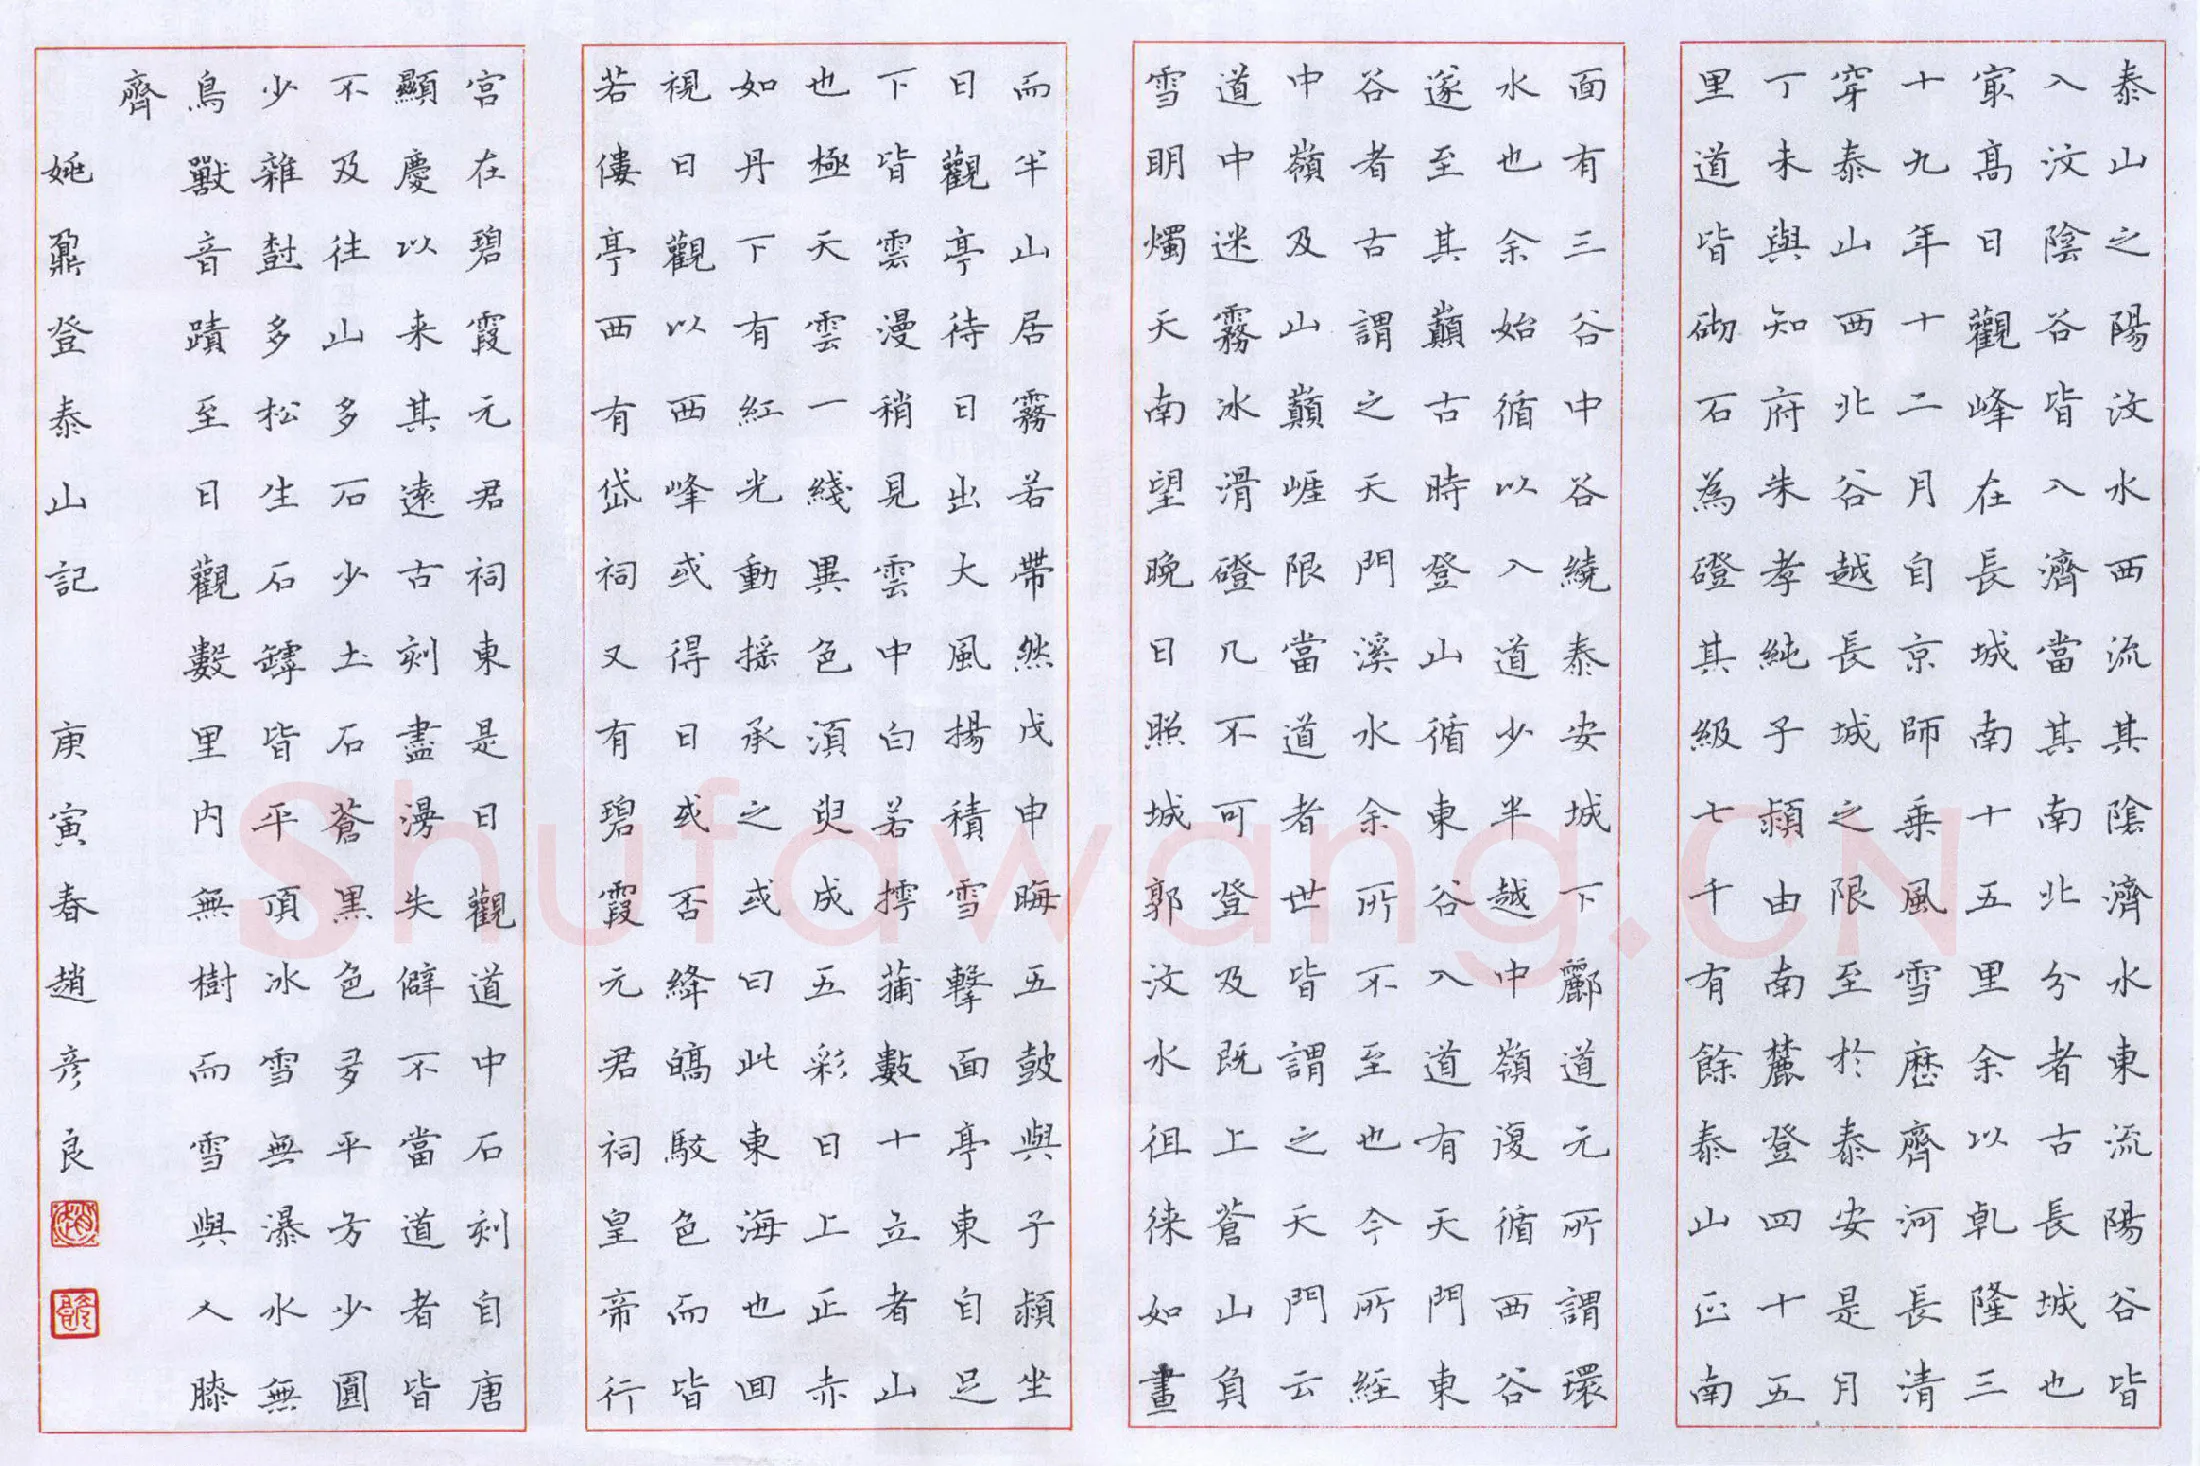 泰山之陽汶水西流其陰濟水東流陽谷皆
入汶陰谷皆入濟當其南北分者古長城也
冣高日觀峰在長城南十五里余以乹隆三
十九年十二月自京師乗風雪歷齊河長清
穿泰山西北谷越長城之限至於泰安是月
丁未與知府朱孝純子潁由南麓登四十五
里道皆砌石為磴其級七千有餘泰山正南
面有三谷中谷繞泰安城下酈道元所謂環
水也余始循以入道少半越中嶺復循西谷
遂至其巔古時登山循東谷入道有天門東
谷者古謂之天門溪水余所不至也今所經
中嶺及山巔崕限當道者世皆謂之天門云
道中迷霧冰滑磴几不可登及既上蒼山負
雪明燭天南望晚日照城郭汶水徂徠如畫
而半山居霧若帶然戊申晦五鼓與子潁坐
日觀亭待日出大風揚積雪擊面亭東自足
下皆雲漫稍見雲中白若摴蒱數十立者山
也極天雲一綫異色須臾成五彩日上正赤
如丹下有紅光動摇承之或曰此東海也回
視日觀以西峰或得日或否絳皜駁色而皆
若僂亭西有岱祠又有碧霞元君祠皇帝行
宮在碧霞元君祠東是日觀道中石刻自唐
顯慶以来其遠古刻盡漫失僻不當道者皆
不及往山多石少土石蒼黑色多平方少圓
少雜樹多松生石罅皆平頂冰雪無瀑水無
鳥獸音蹟至日觀數里内無樹而雪與人膝
齊
姚鼐登泰山記 庚寅春趙彦良
Shufawang.CN